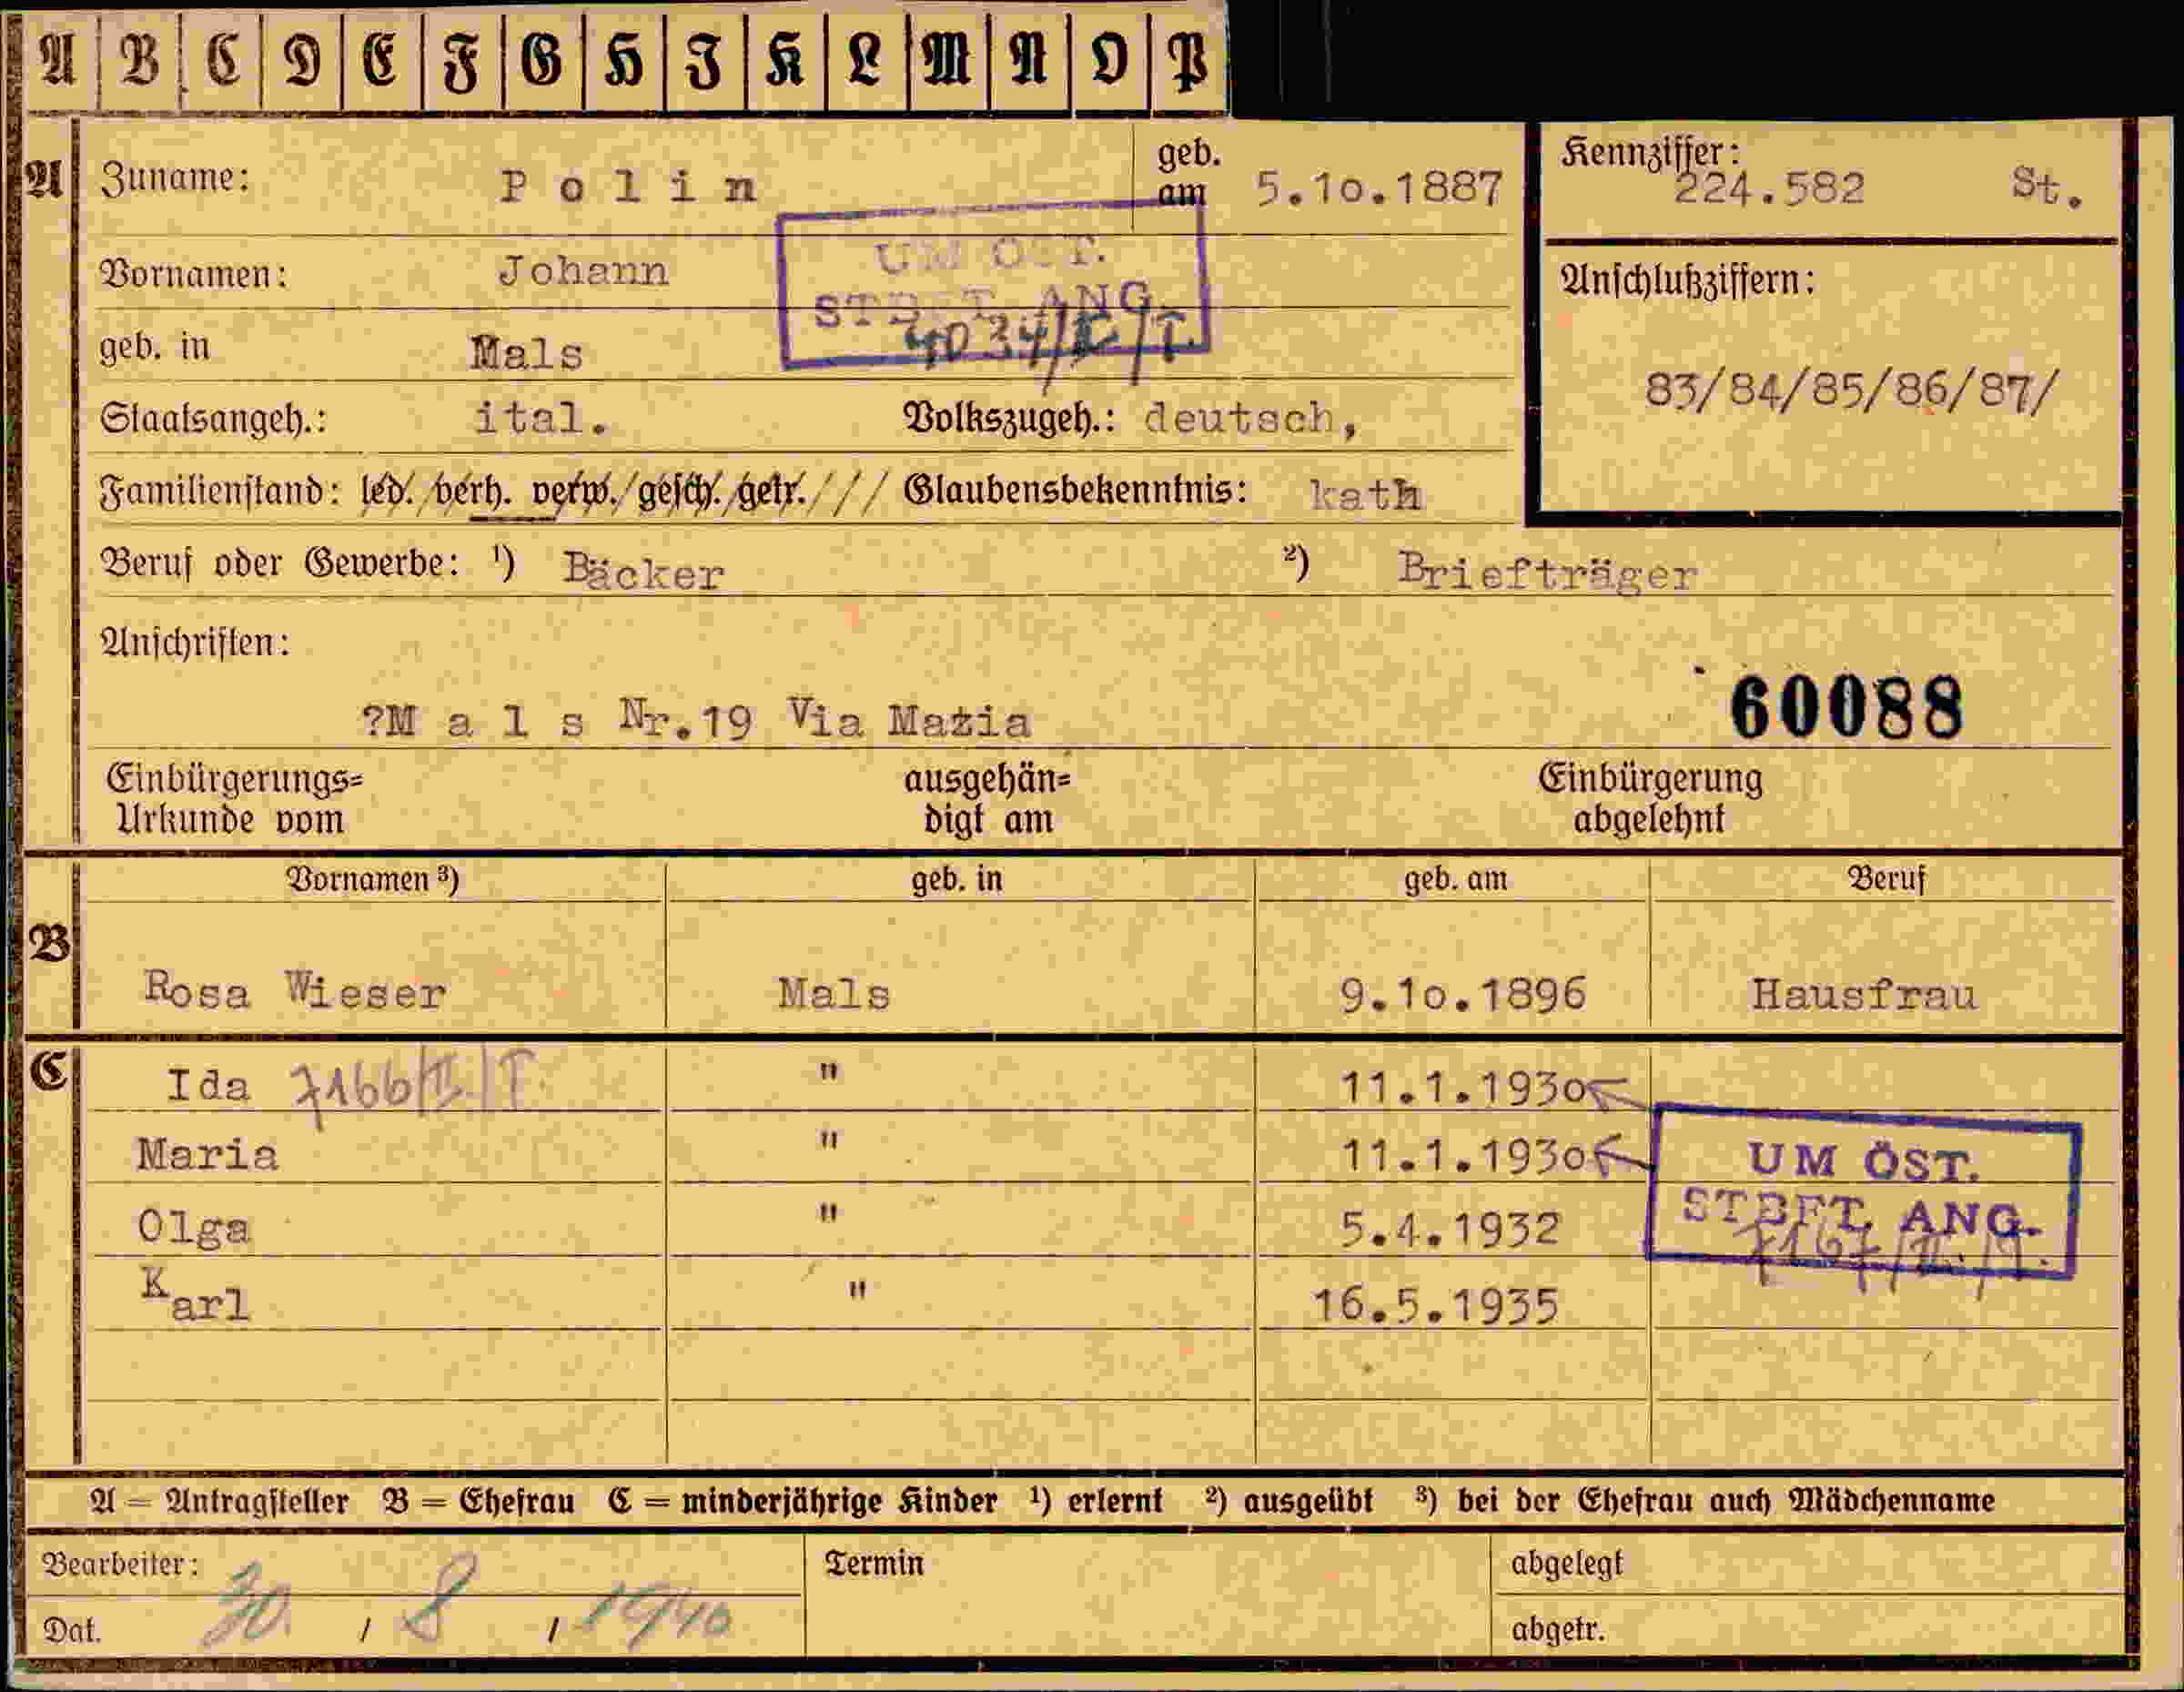 A B C D E F G H J K L M N O P
A Zuname: Polin geb. am 5.10.1887
Kennziffer: 224.582 St.
Vornamen: Johann
UM ÖST.
STBFT. ANG.
4034/II/T.
Anschlußziffern:
83/84/85/86/87/
geb. in Mals
Staatsangeh.: ital. Volkszugeh.: deutsch,
Familienstand: led. verh. verw. gesch. getr. /// Glaubensbekenntnis: kath
Beruf oder Gewerbe: ¹) Bäcker ²) Briefträger
Anschriften:
?M a l s Nr.19 Via Mazia
60088
Einbürgerungs=
Urkunde vom
ausgehän=
digt am
Einbürgerung
abgelehnt
Vornamen ³) geb. in geb. am Beruf
B Rosa Wieser Mals 9.10.1896 Hausfrau
C Ida 7166/II/T. " 11.1.1930
Maria " 11.1.1930
Olga " 5.4.1932
Karl " 16.5.1935
UM ÖST.
STBFT. ANG.
7167/II./T.
A = Antragsteller B = Ehefrau C = minderjährige Kinder ¹) erlernt ²) ausgeübt ³) bei der Ehefrau auch Mädchenname
Bearbeiter: Termin abgelegt
Dat. 30. / 8 / 1940 abgetr.